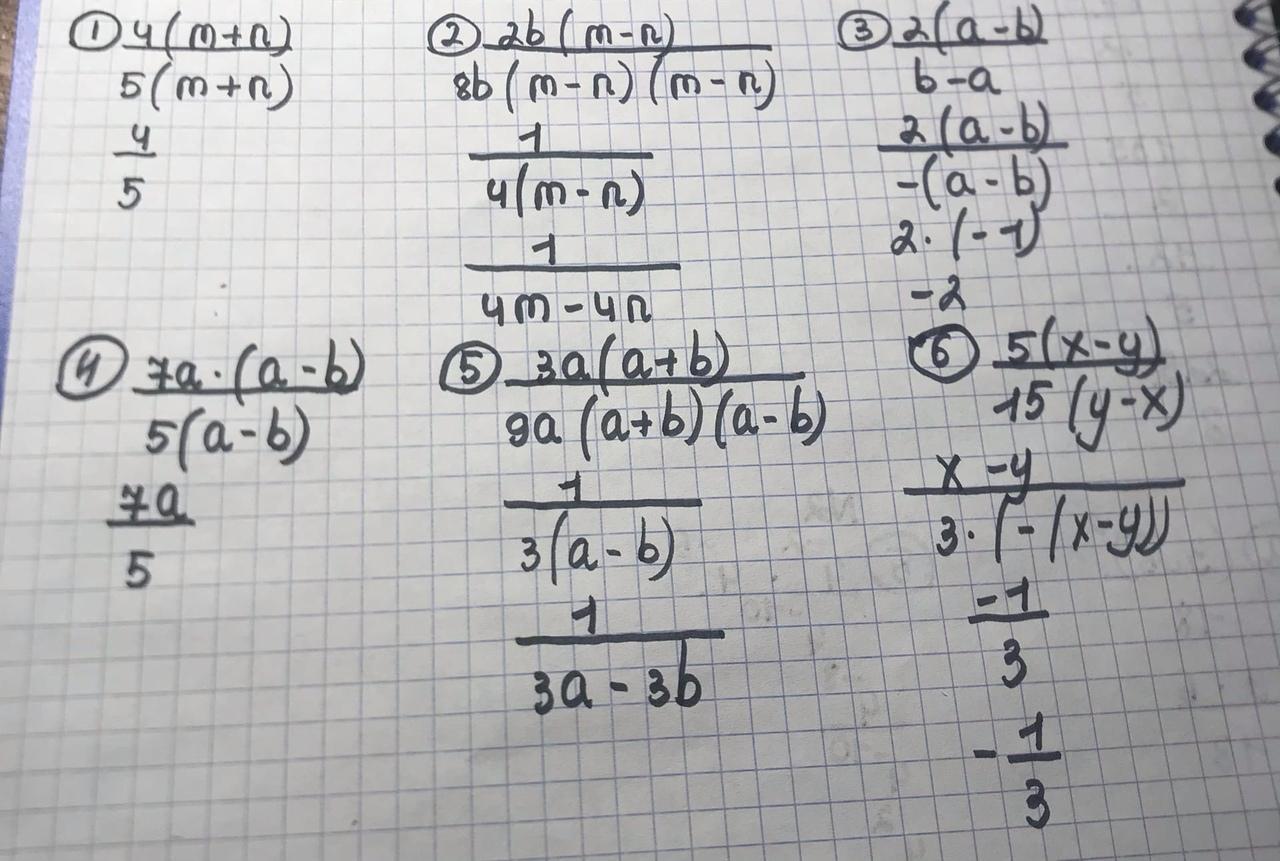 ① 4(m+n)
5(m+n)
4
5
② 2b(m-n)
8b(m-n)(m-n)
1
4(m-n)
1
4m-4n
③ 2(a-b)
b-a
2(a-b)
-(a-b)
2·(-1)
-2
④ 7a·(a-b)
5(a-b)
7a
5
⑤ 3a(a+b)
9a(a+b)(a-b)
1
3(a-b)
1
3a-3b
⑥ 5(x-y)
15(y-x)
x-y
3·(-(x-y))
-1
3
-1
3